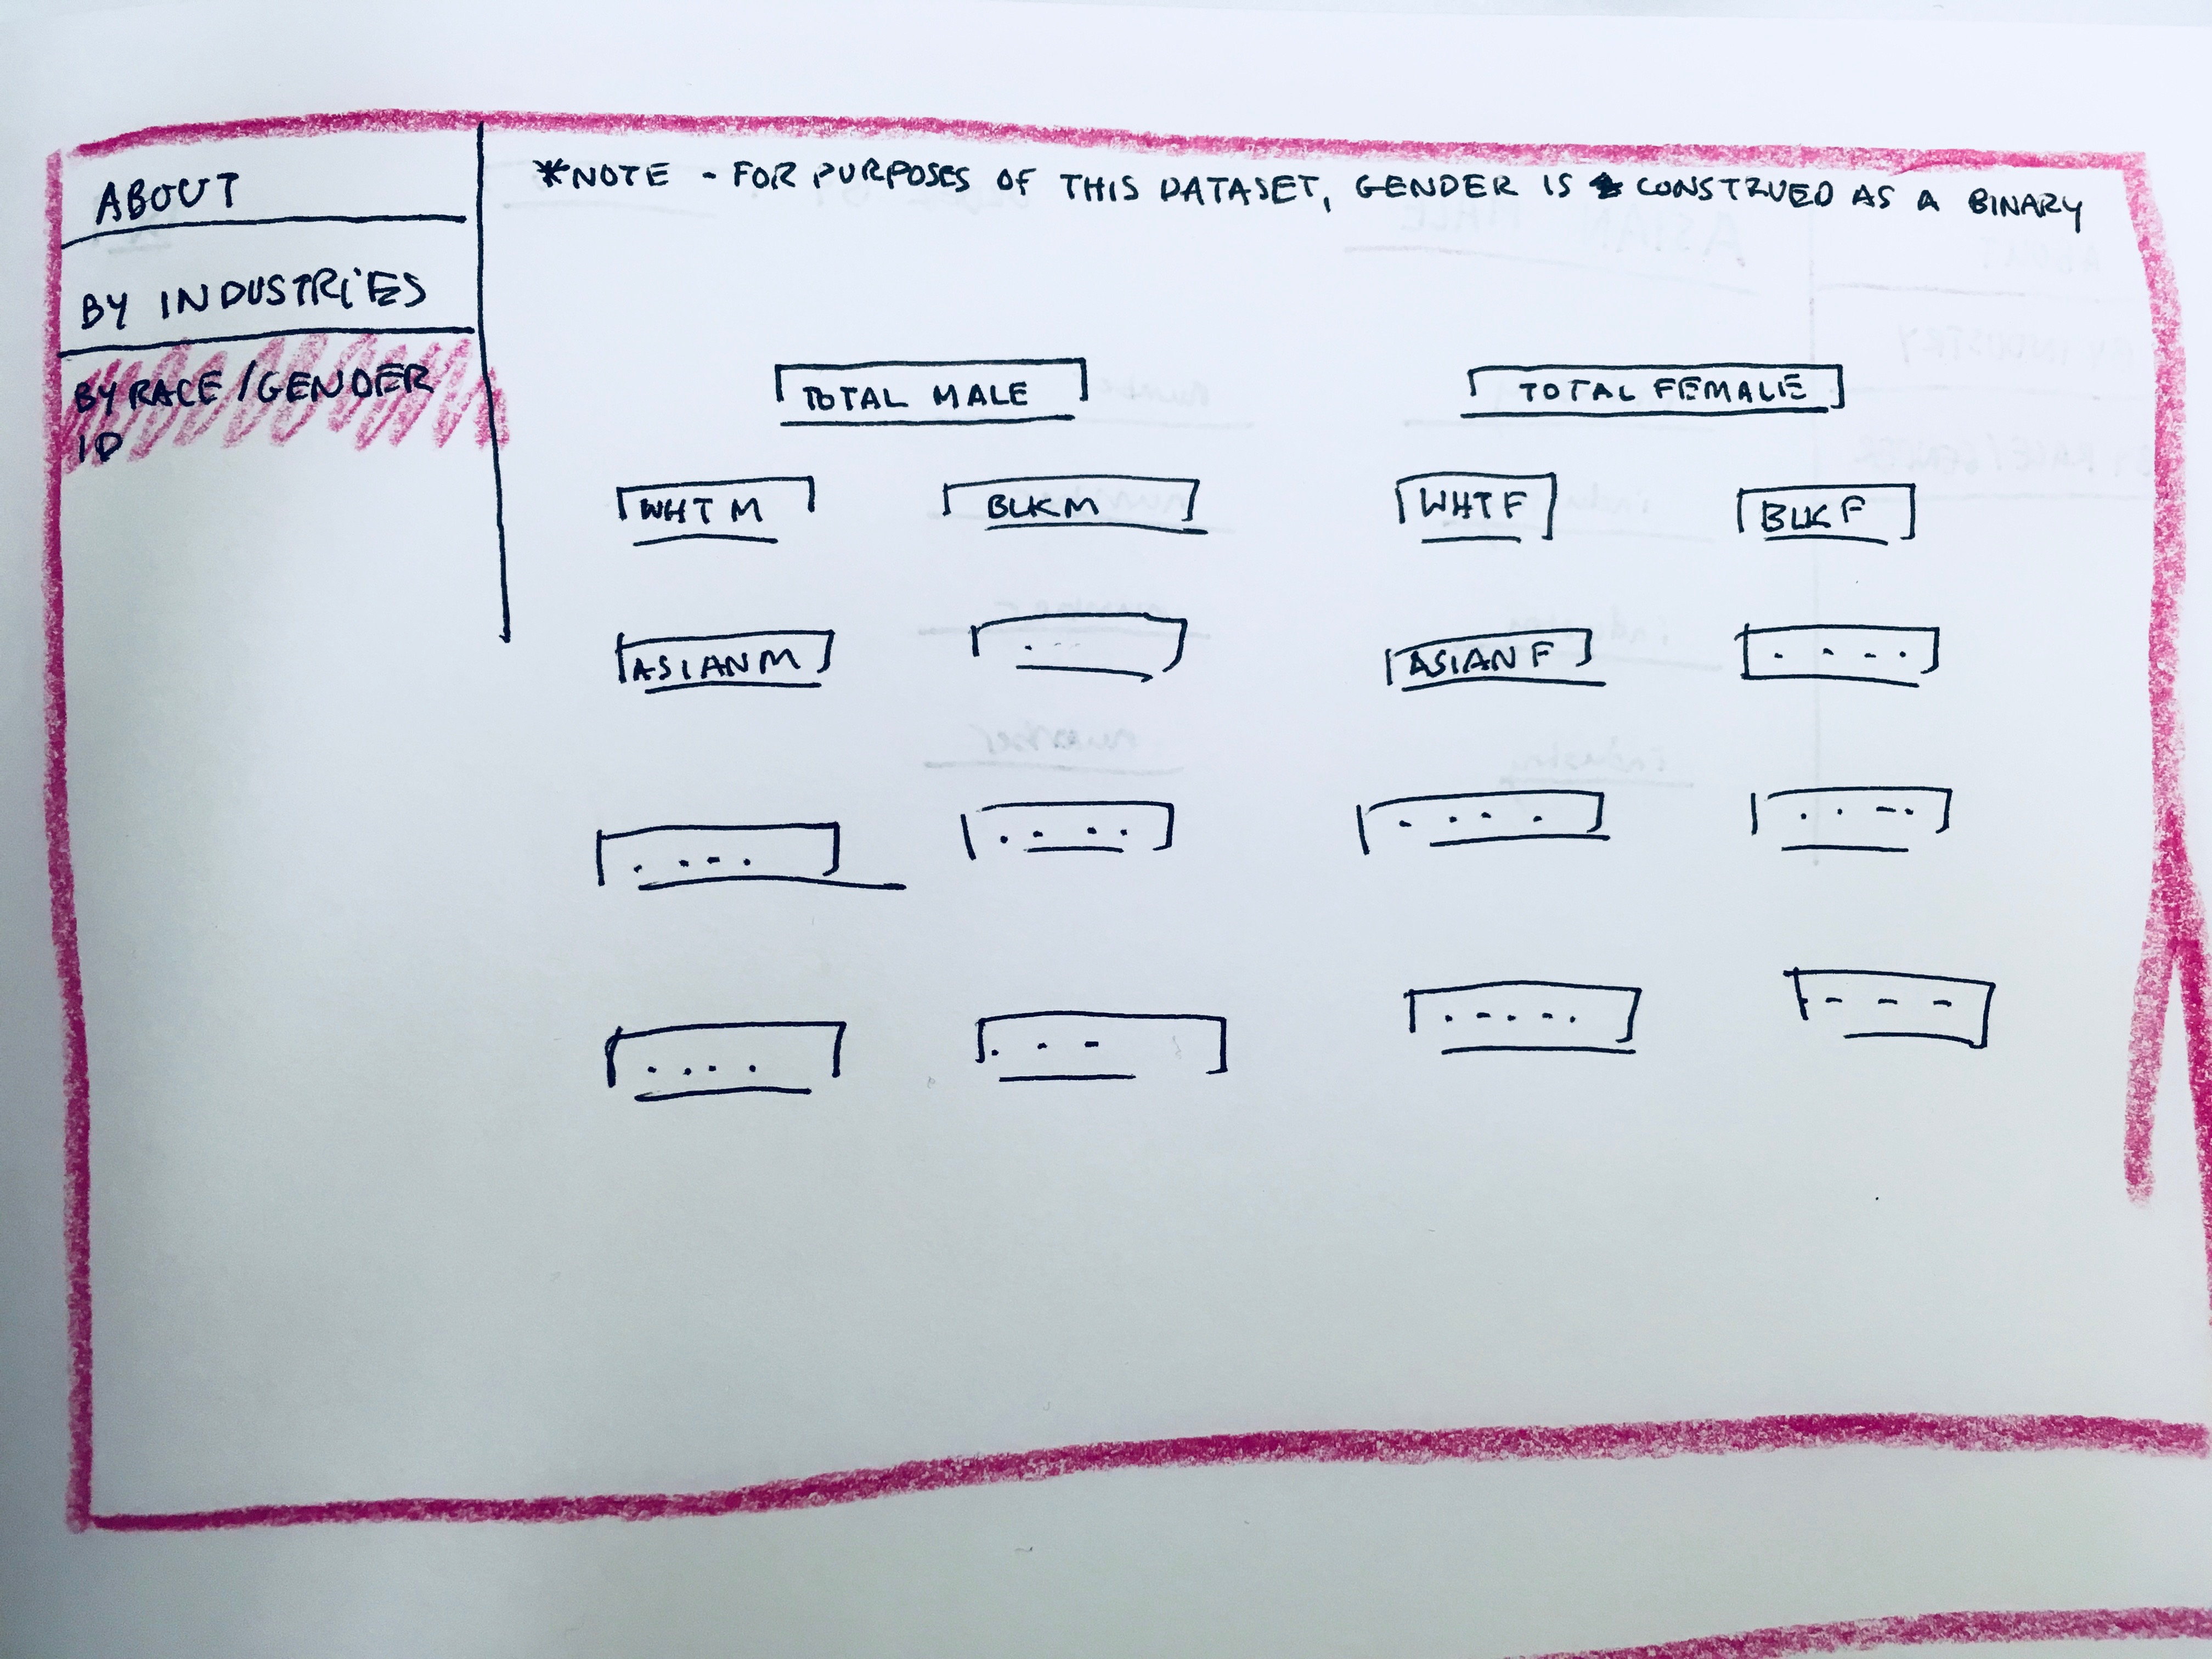 ABOUT
BY INDUSTRIES
BY RACE/GENDER
ID
*NOTE - FOR PURPOSES OF THIS DATASET, GENDER IS CONSTRUED AS A BINARY
TOTAL MALE
TOTAL FEMALE
WHT M
BLK M
WHT F
BLK F
ASIAN M
ASIAN F